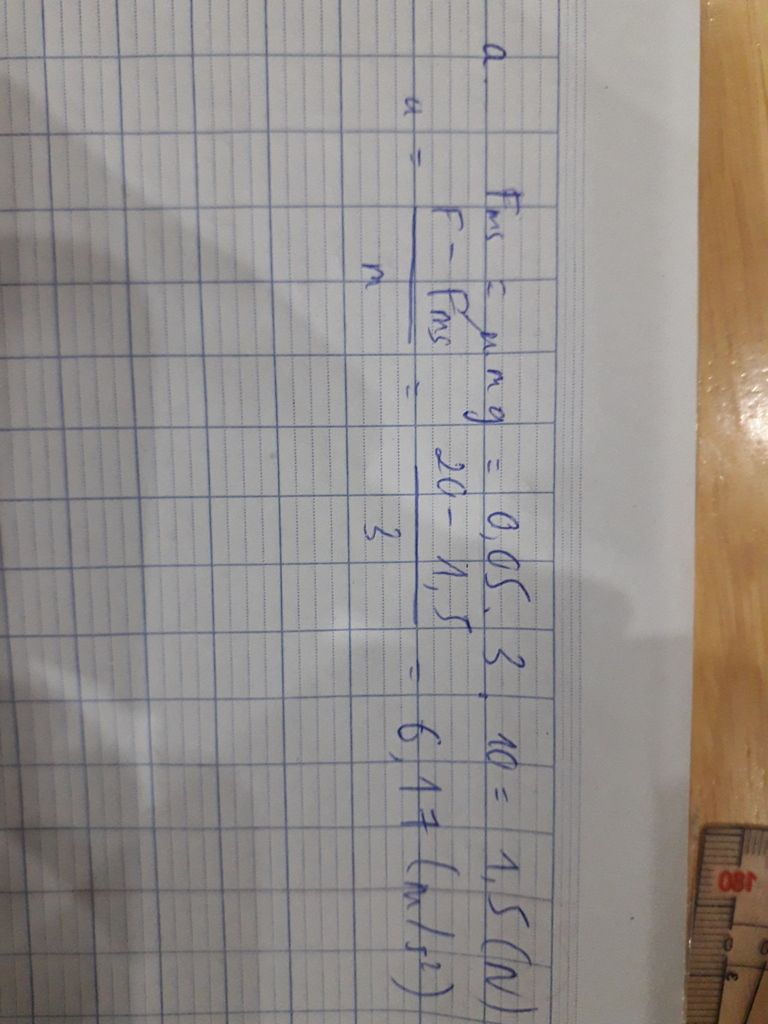 a. Fms = μmg = 0,05. 3. 10 = 1,5 (N)
a = \frac{F - Fms}{m} = \frac{20 - 1,5}{3} = 6,17 (m/s²)
180